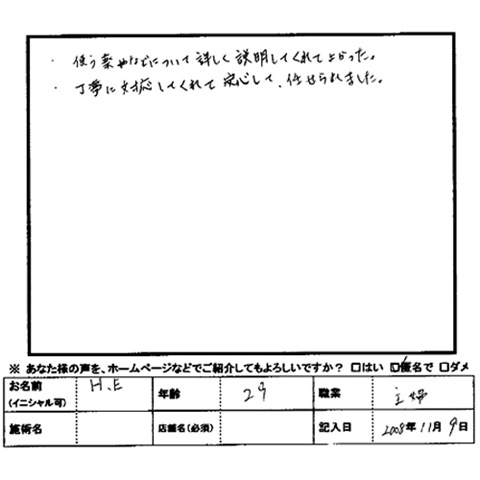 ・使う薬やなどについて詳しく説明してくれてよかった。
・丁寧に対応してくれて安心して、任せられました。
※ あなた様の声を、ホームページなどでご紹介してもよろしいですか？ □はい □匿名で □ダメ
お名前 (イニシャル可) H.E 年齢 29 職業 主婦
施術名 店舗名(必須) 記入日 2008年11月9日